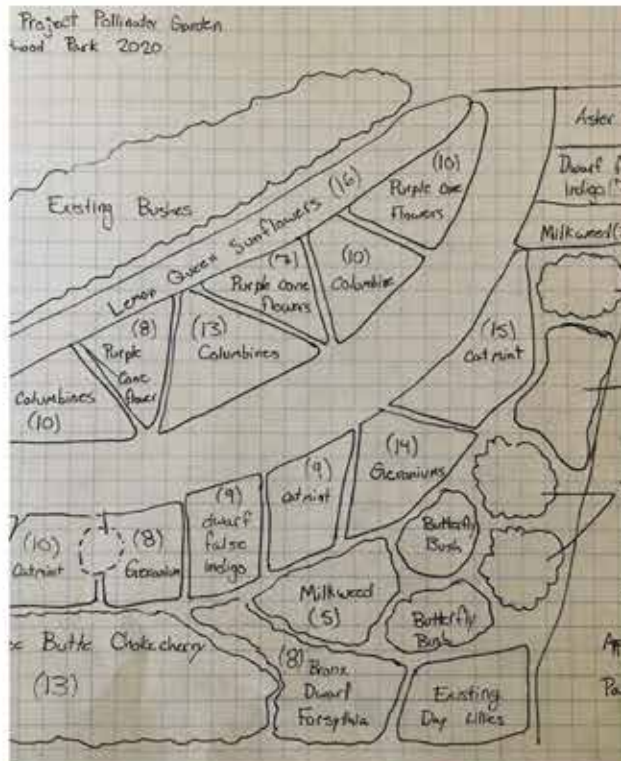 Project Pollinator Garden
Park 2020
Existing Bushes
Lemon Queen Sunflowers (16)
(10)
Purple cone
flowers
Aster
Dwarf
Indigo
Milkweed
(10)
Columbine
(7)
Purple cone
flowers
(13)
Columbines
(8)
Purple
Cone
flower
Columbines
(10)
(15)
Catmint
(14)
Geraniums
(9)
Catmint
(9)
dwarf
false
Indigo
(8)
Geranium
(10)
Catmint
Butterfly
Bush
Milkweed
(5)
Butterfly
Bush
Butte Chokecherry
(13)
(8) Bronx
Dwarf
Forsythia
Existing
Day Lillies